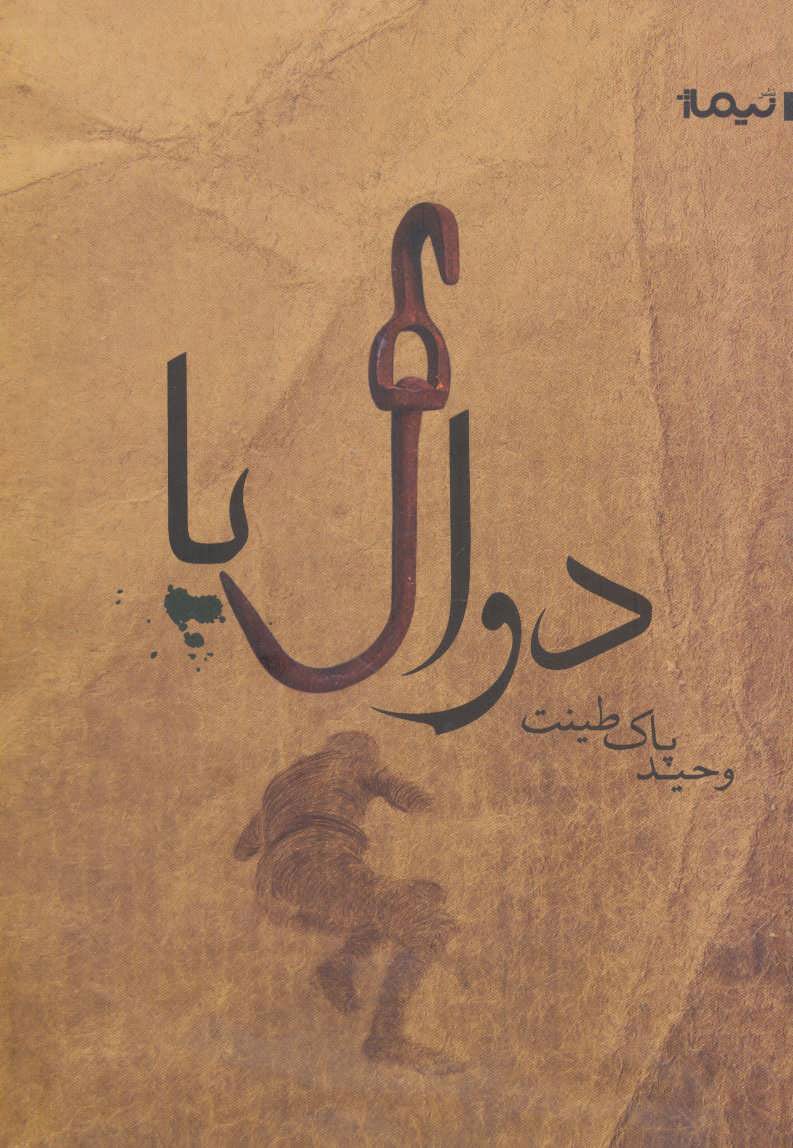 نشر نیماژ
دوال پا
وحید پاک‌طینت